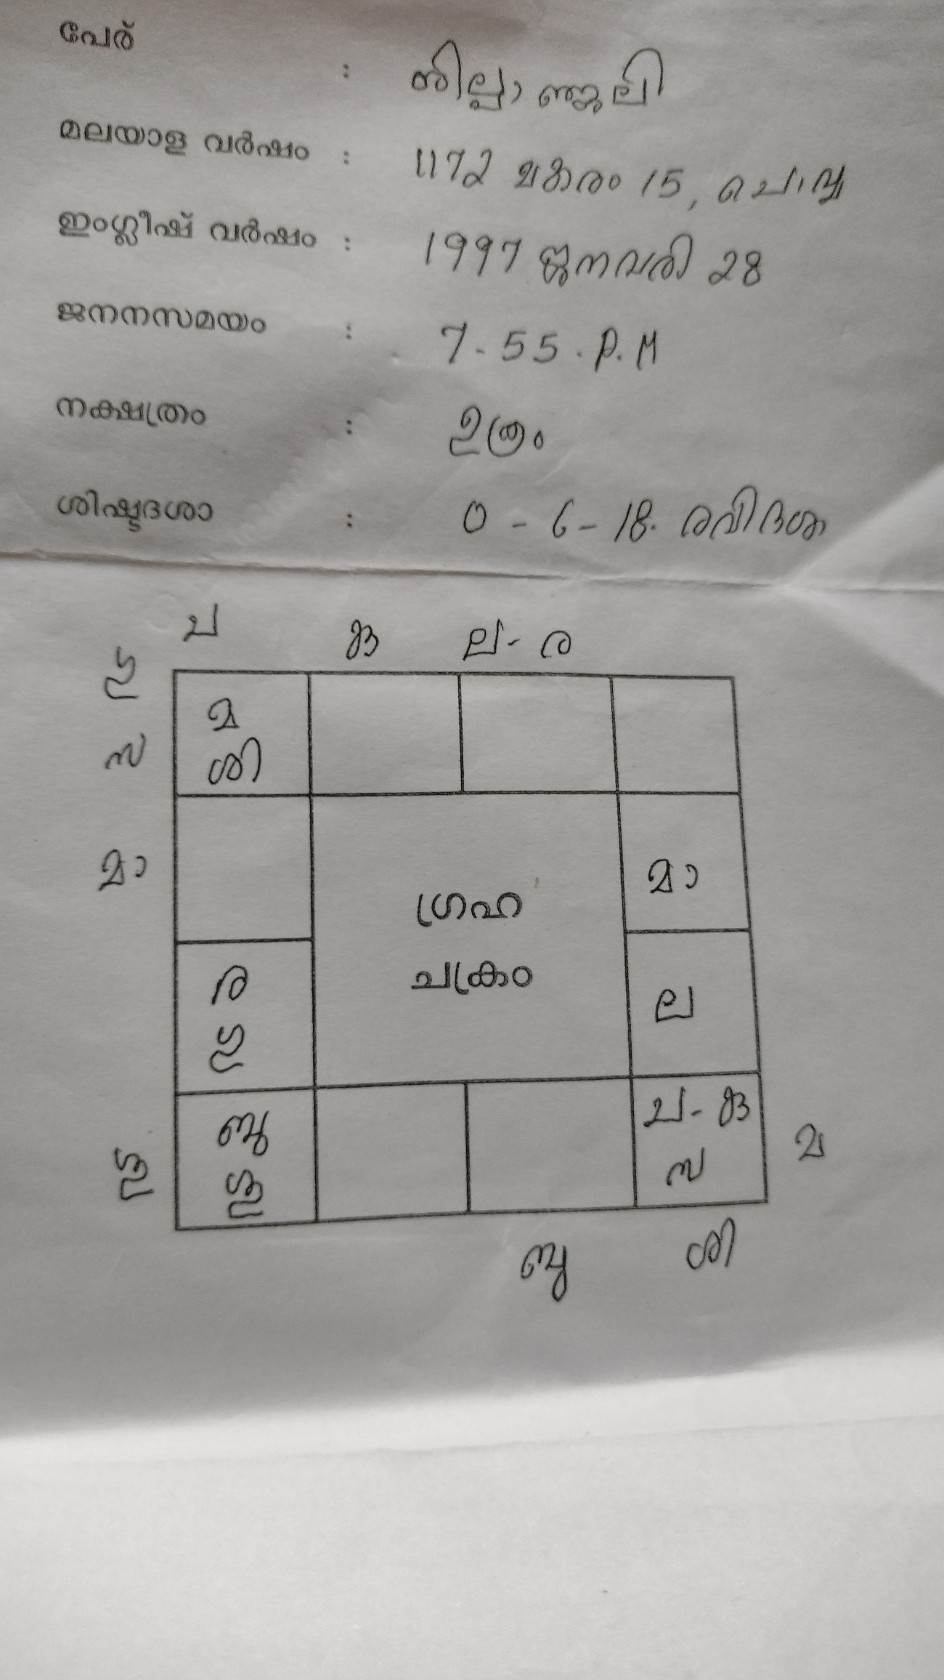 പേര് :
മലയാള വർഷം : 1172 മകരം 15, ചൊവ്വ
ഇംഗ്ലീഷ് വർഷം : 1997 ജനവരി 28
ജനനസമയം : 7-55.P.M
നക്ഷത്രം : ഉത്രം
ശിഷ്ടദശാ : 0-6-18. രവിദശ
ച കു ല-ര
ഗു
സ
മ
ശി
മാ
മാ
ഗ്രഹ
ചക്രം
ര
ഗു
ല
ബു
ശു
ച-കു
സ
ശു
മ
ബു ശി